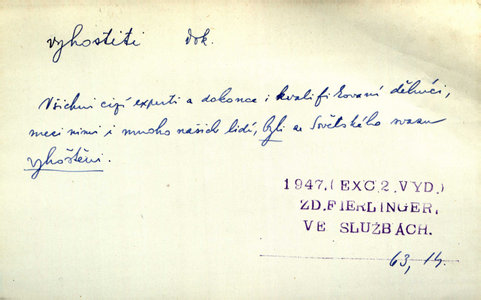 vyhostiti dok.
Všichni cizí experti a dokonce i kvalifikovaní dělníci,
mezi nimi i mnoho našich lidí, byli ze Sovětského svazu
vyhoštěni.
1947.(EXC.2.VYD.)
ZD.FIERLINGER,
VE SLUŽBÁCH.
63, 14.